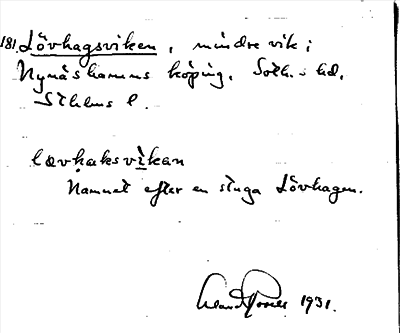 181. Lövhagsviken, mindre vik i
Nynäshamns köping, Soth.s hd,
Sthlms l.
lœvhaksvìkan
Namnet efter en stuga Lövhagen.
1931.